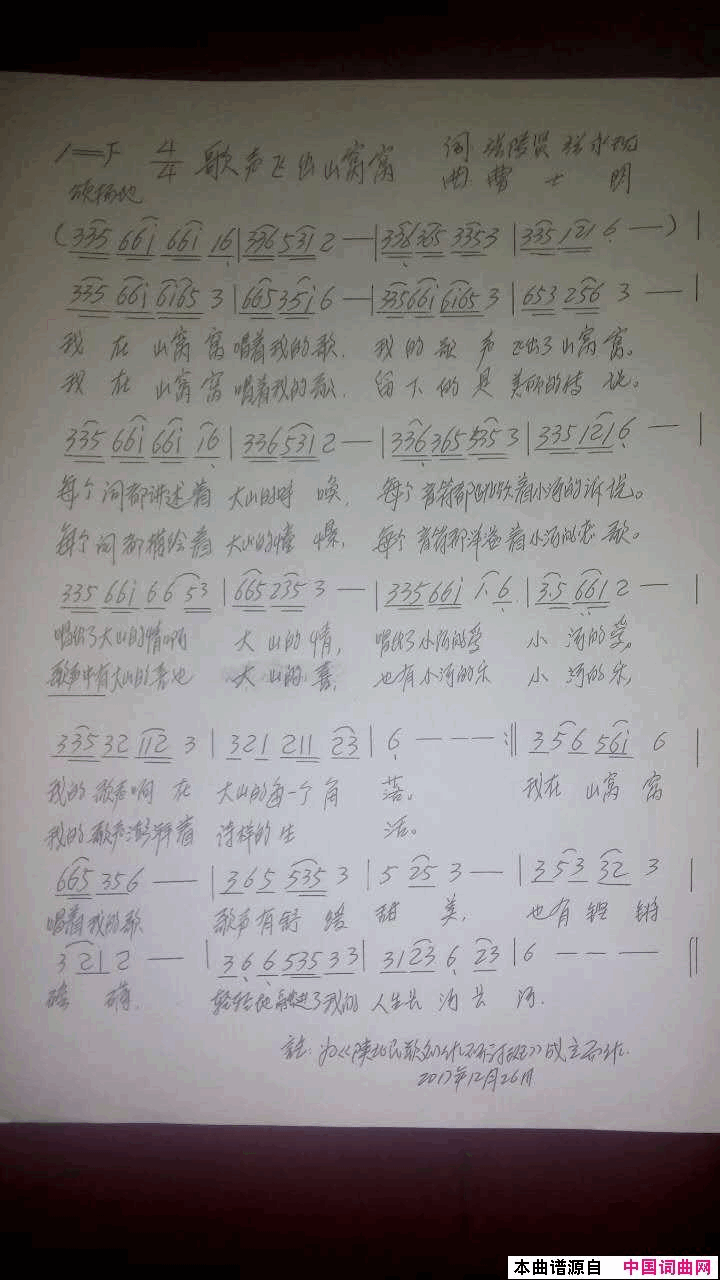 1=F 4/4 歌声飞出山窝窝 词 张 贤 张永
颂扬地 曲 曹士明
(335 66i 66i 16|336 531 2 —|336 365 335 3|335 121 6 — —)|
335 66i 6i65 3|665 35i 6 —|335 66i 6i65 3|653 256 3 —|
我在山窝窝唱着我的歌. 我的歌声飞出了山窝窝。
我在山窝窝唱着我的歌. 留下的是美丽的传说。
335 66i 66i i6|336 531 2 —|336 365 535 3|335 121 6 —|
每个词都讲述着大山的呼唤, 每个音符都 着小河的诉说。
每个词都描绘着大山的情 , 每个音符都洋溢着小河的恋歌。
335 66i 6 6 53|665 235 3 —|335 66i 1· 6|3·5 661 2 —|
唱出了大山的情 大山的情, 唱出了小河的爱 小河的爱,
歌声中有大山的喜也 大山的喜, 也有小河的乐 小河的乐,
335 32 112 3|321 211 23|6 — — — :‖ 356 56i 6|
我的歌声响在大山的每一个角落。 我在山窝窝
我的歌声 着诗样的生活。
665 356 —|365 535 3|5 25 3 —|353 32 3|
唱着我的歌 歌声有舒缓甜美, 也有铿锵
3 21 2 —|36 6 535 33|31 23 6 23|6 — — — —‖
轻轻地融进了我的人生长河长河.
注: 为《陕北民歌创作研讨班》成立而作.
2017年12月26日
本曲谱源自 中国词曲网